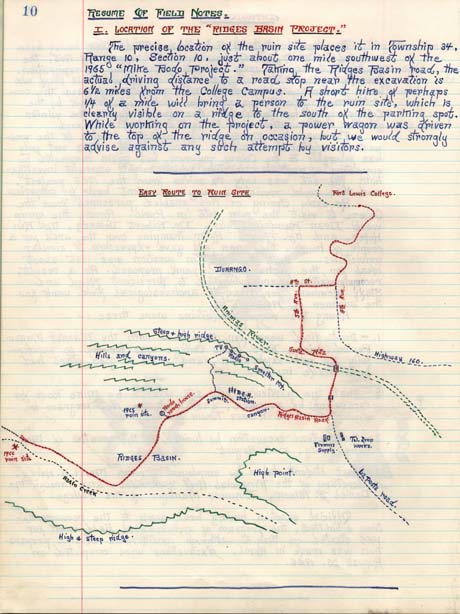 10
RESUME OF FIELD NOTES.
I. LOCATION OF THE "RIDGES BASIN PROJECT."
The precise location of the ruin site places it in Township 34,
Range 10, Section 10, just about one mile southwest of the
1965 "Mike Bodo Project." Taking the Ridges Basin road, the
actual driving distance to a road stop near the excavation is
6½ miles from the College Campus. A short hike of perhaps
¼ of a mile will bring a person to the ruin site, which is
clearly visible on a ridge to the south of the parking spot.
While working on the project, a power wagon was driven
to the top of the ridge on occasion, but we would strongly
advise against any such attempt by visitors.
EASY ROUTE TO RUIN SITE
Fort Lewis College.
DURANGO.
8th St.
5th Ave.
8th Ave.
Animas River.
Highway 160.
Steep & high ridge.
Hills and canyons.
Smelter Mt.
Station.
Summit.
Canyon.
Ridges Basin Road.
1965
ruin site.
ranch house.
1966
ruin site.
RIDGES BASIN.
Creek
High point.
Supply.
works.
La Posta road.
High & steep ridge.